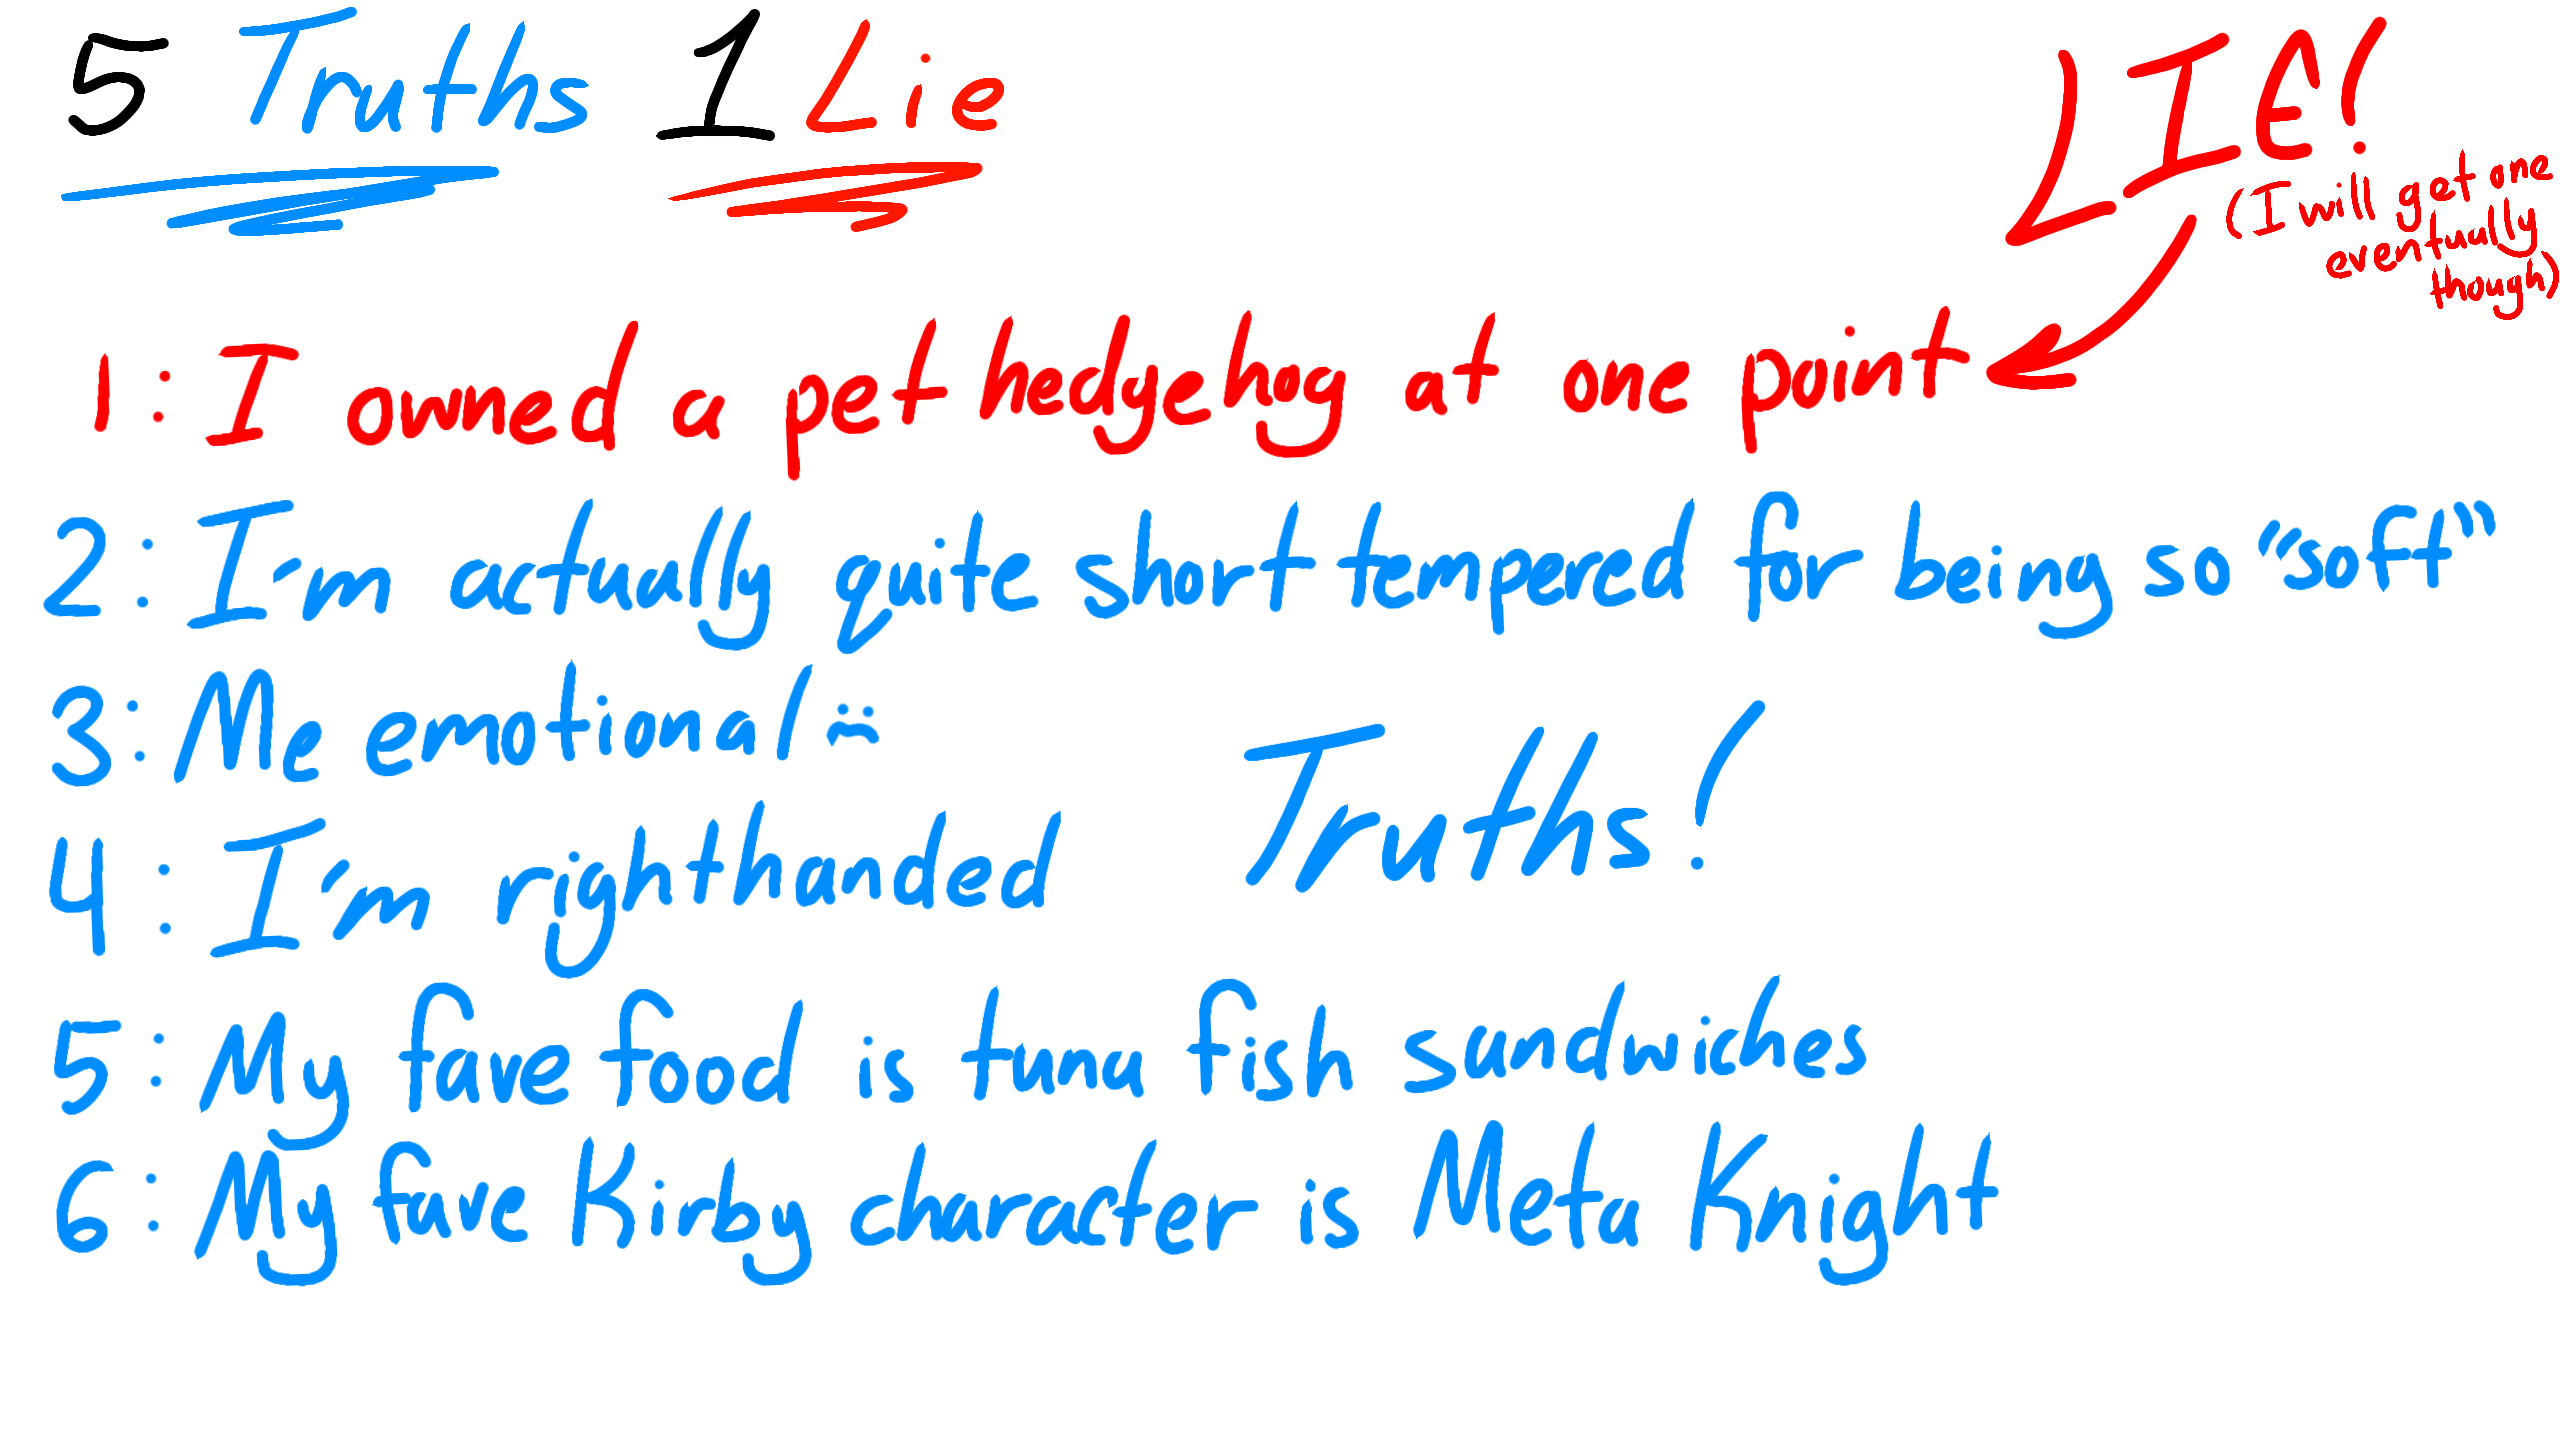 5 Truths 1 Lie
LIE!
(I will get one
eventually
though)
1: I owned a pet hedgehog at one point
2: I'm actually quite short tempered for being so "soft"
3: Me emotional :(
4: I'm righthanded
Truths!
5: My fave food is tuna fish sandwiches
6: My fave Kirby character is Meta Knight